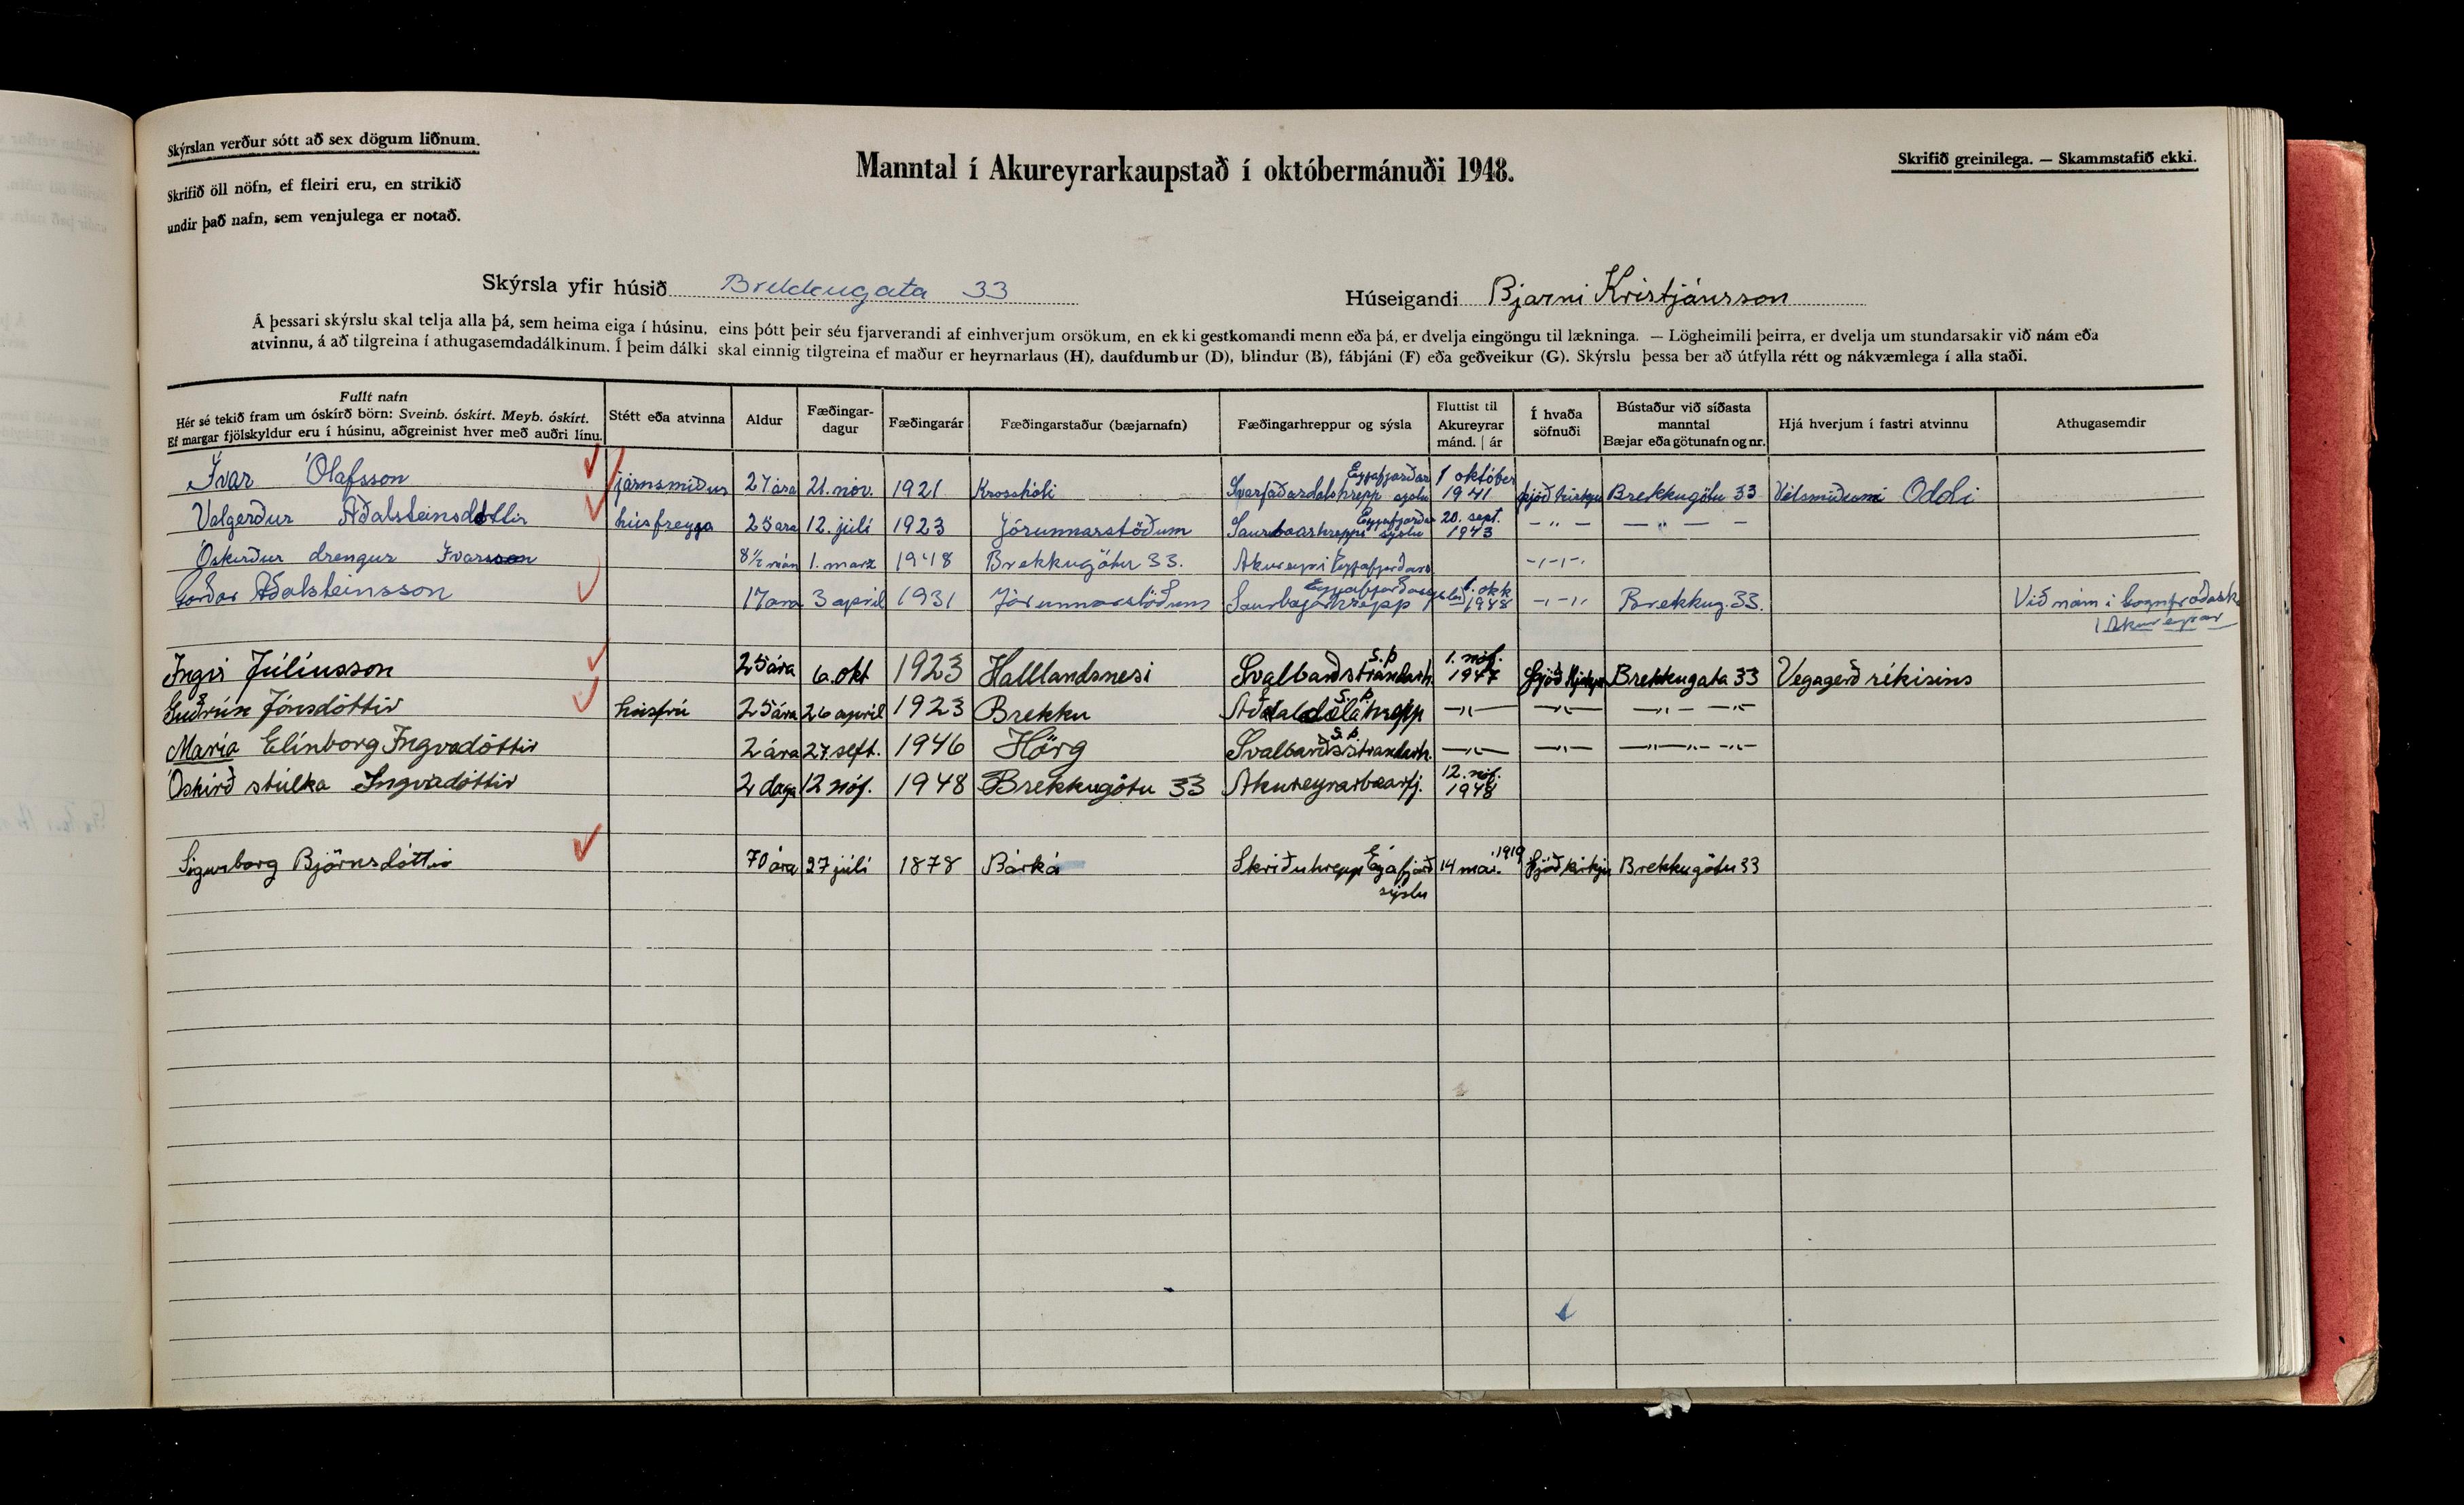 Skýrslan verður sótt að sex dögum liðnum.
Skrifið öll nöfn, ef fleiri eru, en strikið
undir það nafn, sem venjulega er notað.
Manntal í Akureyrarkaupstað í októbermánuði 1948.
Skrifið greinilega. — Skammstafið ekki.
Skýrsla yfir húsið Brekkugata 33
Húseigandi Bjarni Kristjánsson
Á þessari skýrslu skal telja alla þá, sem heima eiga í húsinu, eins þótt þeir séu fjarverandi af einhverjum orsökum, en ekki gestkomandi menn eða þá, er dvelja eingöngu til lækninga. — Lögheimili þeirra, er dvelja um stundarsakir við nám eða
atvinnu, á að tilgreina í athugasemdadálkinum. Í þeim dálki skal einnig tilgreina ef maður er heyrnarlaus (H), daufdumbur (D), blindur (B), fábjáni (F) eða geðveikur (G). Skýrslu þessa ber að útfylla rétt og nákvæmlega í alla staði.
Fullt nafn
Hér sé tekið fram um óskírð börn: Sveinb. óskírt. Meyb. óskírt.
Ef margar fjölskyldur eru í húsinu, aðgreinist hver með auðri línu.
Stétt eða atvinna
Aldur
Fæðingar-
dagur
Fæðingarár
Fæðingarstaður (bæjarnafn)
Fæðingarhreppur og sýsla
Fluttist til
Akureyrar
mánd. | ár
Í hvaða
söfnuði
Bústaður við síðasta
manntal
Bæjar eða götunafn og nr.
Hjá hverjum í fastri atvinnu
Athugasemdir
Ívar Ólafsson járnsmiður 27 ára 21. nóv. 1921 Krosshóli Svarfaðardalshrepp Eyjafjarðar sýslu 1 október 1941 þjóðkirkju Brekkugötu 33 Vélsmiðunni Oddi
Valgerður Aðalsteinsdóttir húsfreyja 25 ára 12. júlí 1923 Jórunnarstöðum Saurbæarhreppi Eyjafjarðar sýslu 20. sept. 1943 – „ – — „ — –
Óskírður drengur Ívarsson 8½ mán 1. marz 1948 Brekkugötu 33. Akureyri Eyjafjarðars -,-,-,
Garðar Aðalsteinsson 17 ára 3 apríl 1931 Jórunnarstöðum Saurbæjarhrepp Eyjafjarðarsýslu 1. okk 1948 -,-,, Brekkug. 33. Við nám í Gagnfræðask.
Akureyrar
Ingvi Júlíusson 25 ára 6. okt 1923 Halllandsnesi Svalbarðstrandarh. S.Þ 1. nóf. 1947 þjóð kirkju Brekkugata 33 Vegagerð ríkisins
Guðrún Jónsdóttir húsfrú 25 ára 26 apríl 1923 Brekku Aðaldælahrepp S.Þ. —„— —„— —„— —„—
María Elínborg Ingvadóttir 2 ára 27. seft. 1946 Hörg Svalbarðsstrandarh. S.Þ. —„— —„— —„— —„—
Óskírð stúlka Ingvadóttir 2 daga 12 nóf. 1948 Brekkugötu 33 Akureyrarbæarfj. 12. nóf. 1948
Sigurborg Björnsdóttir 70 ára 27 júlí 1878 Bárká Skriðuhrepp Eyjafjarð sýslu 14 maí. 1919 þjóðkirkju Brekkugötu 33